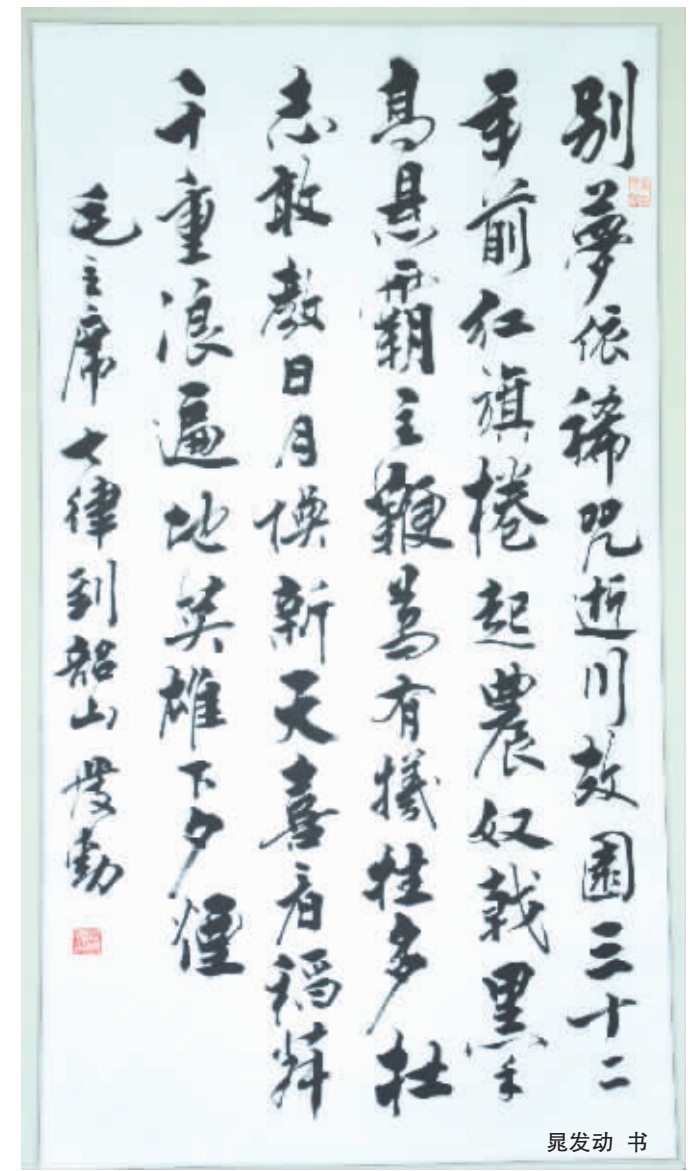 别夢依稀咒逝川故園三十二
年前红旗捲起農奴戟黑手
高悬霸主鞭為有犧牲多壮
志敢教日月换新天喜看稻菽
千重浪遍地英雄下夕煙
毛主席七律到韶山 發動
晁发动 书